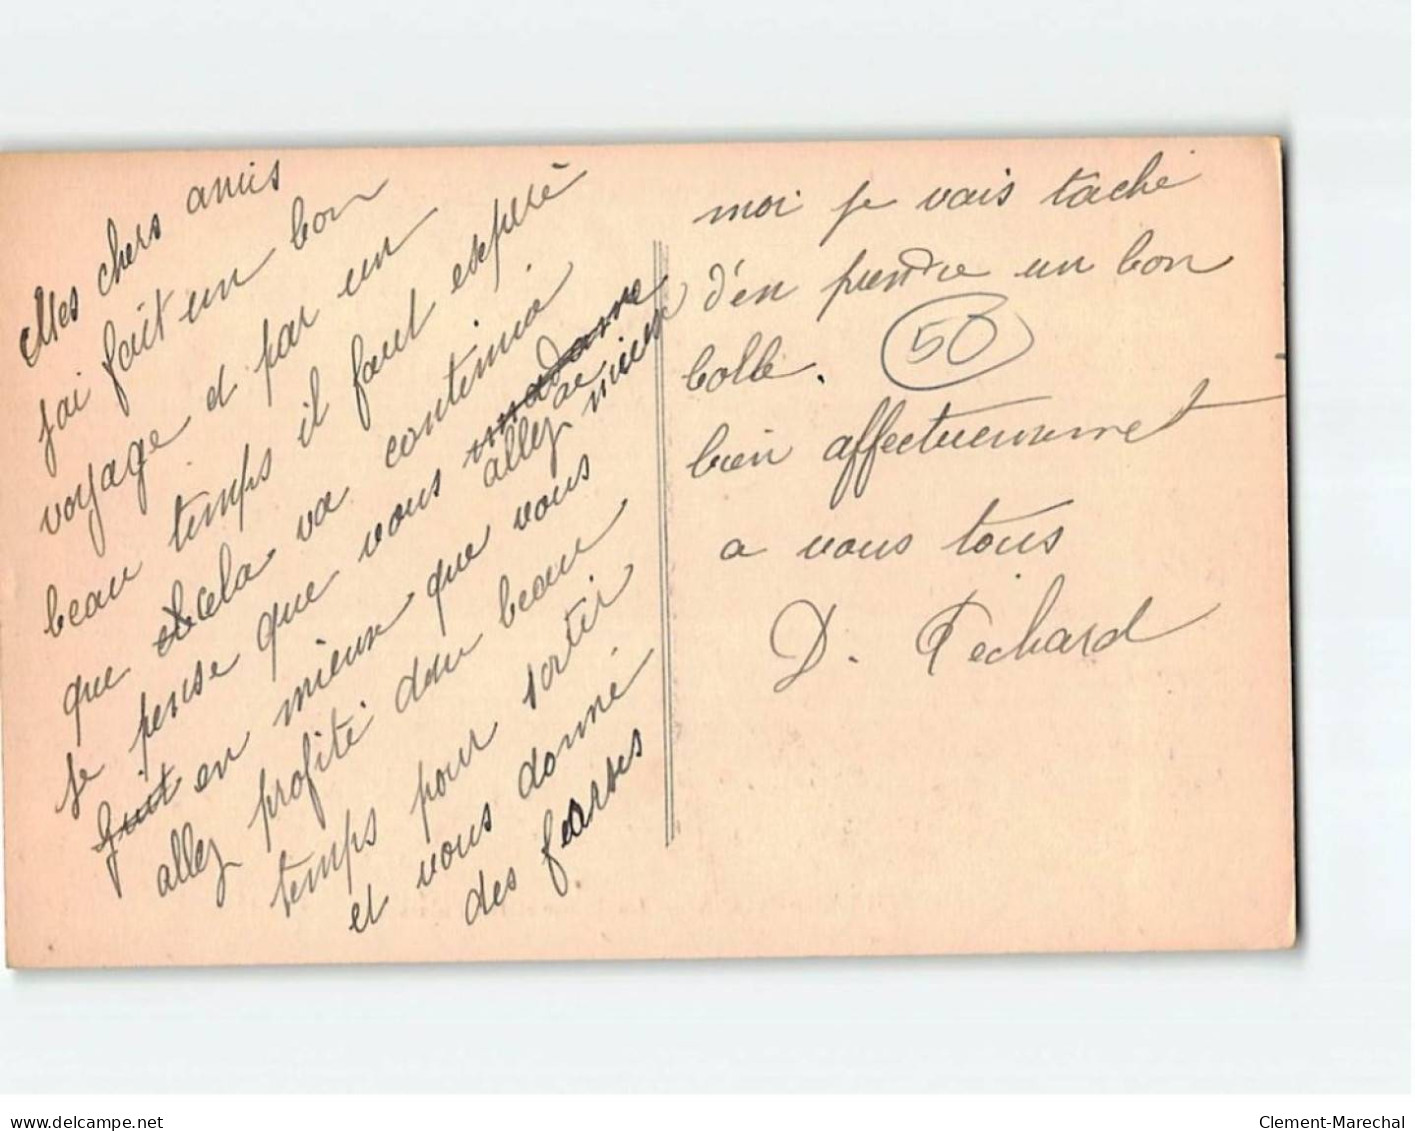 Mes chers amis
jai fait un bon
voyage et par un
beau temps il faut espéré
que cela va continué
je pense que vous madame
allez de mieux
quit en mieux que vous
allez profité du beau
temps pour sortir
et vous donné
des forses
moi je vais taché
d'en prendre un bon
bolle.
50
bien affectueusement
a vous tous
D. Péchard
delcampe.net
Clement-Marechal